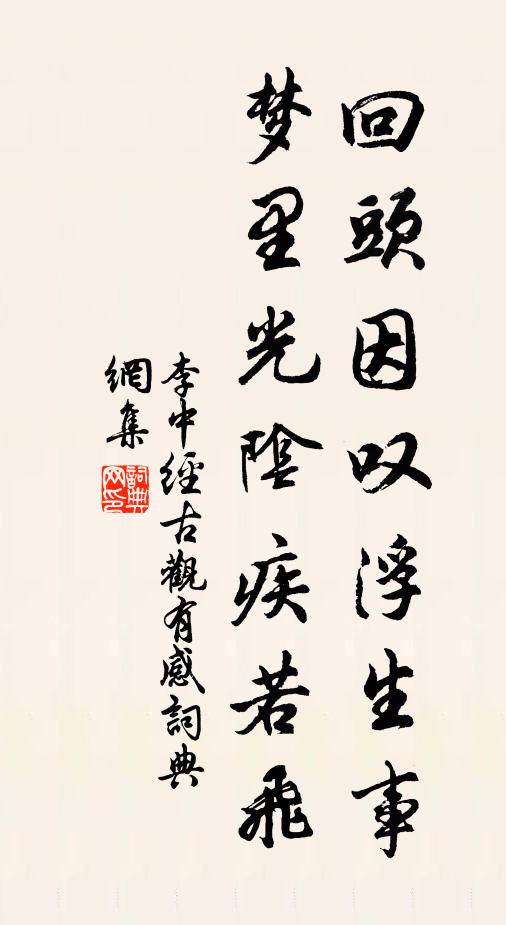 回頭因叹浮生事
梦里光陰疾若飛
李中經古觀有感詞典
網集
詞典
网印